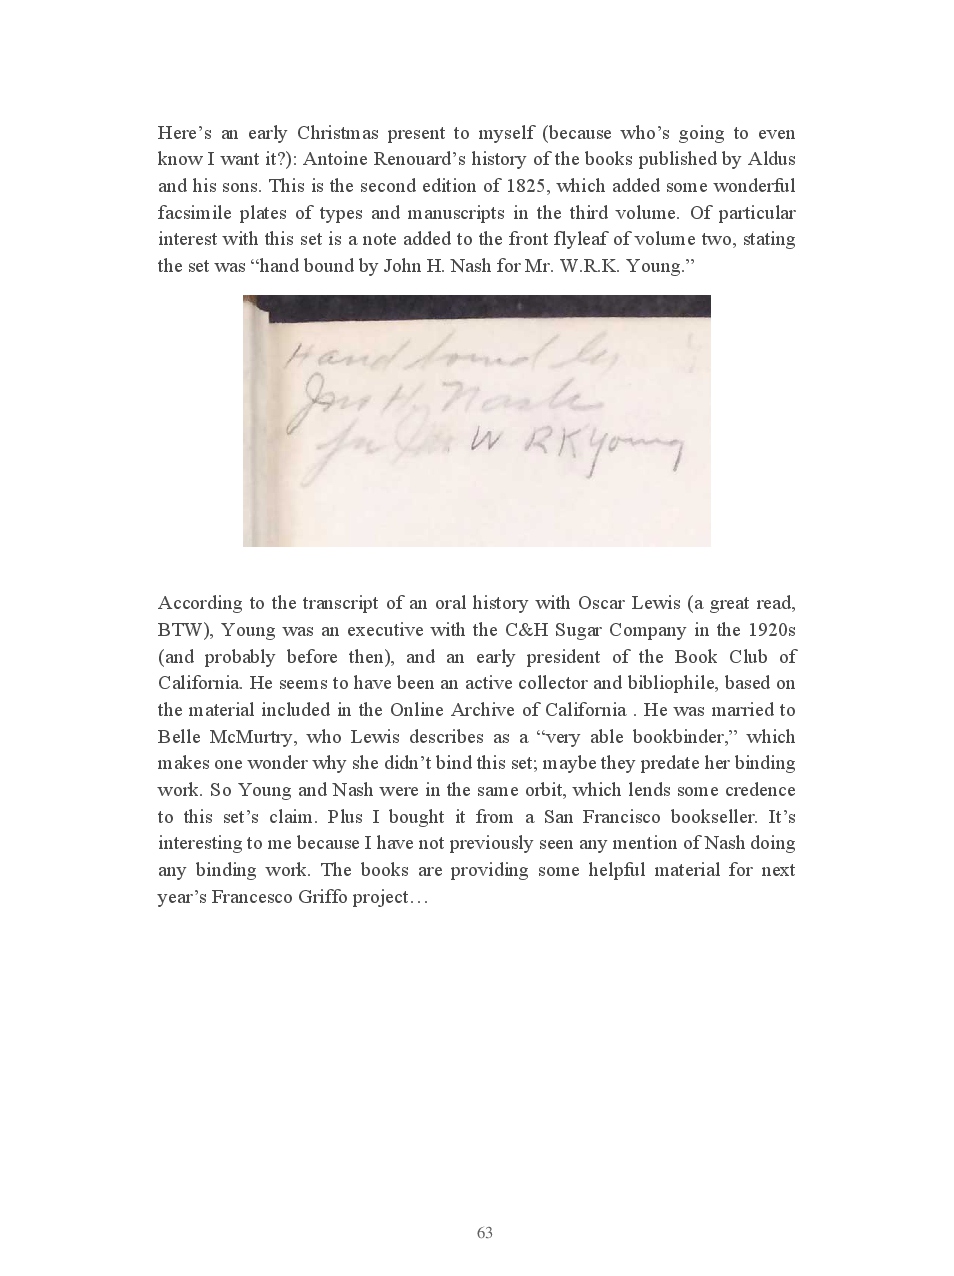 Here’s an early Christmas present to myself (because who’s going to even
know I want it?): Antoine Renouard’s history of the books published by Aldus
and his sons. This is the second edition of 1825, which added some wonderful
facsimile plates of types and manuscripts in the third volume. Of particular
interest with this set is a note added to the front flyleaf of volume two, stating
the set was “hand bound by John H. Nash for Mr. W.R.K. Young.”
Hand bound by
Jno H. Nash
for Mr. W RK Young
According to the transcript of an oral history with Oscar Lewis (a great read,
BTW), Young was an executive with the C&H Sugar Company in the 1920s
(and probably before then), and an early president of the Book Club of
California. He seems to have been an active collector and bibliophile, based on
the material included in the Online Archive of California . He was married to
Belle McMurtry, who Lewis describes as a “very able bookbinder,” which
makes one wonder why she didn’t bind this set; maybe they predate her binding
work. So Young and Nash were in the same orbit, which lends some credence
to this set’s claim. Plus I bought it from a San Francisco bookseller. It’s
interesting to me because I have not previously seen any mention of Nash doing
any binding work. The books are providing some helpful material for next
year’s Francesco Griffo project…
63